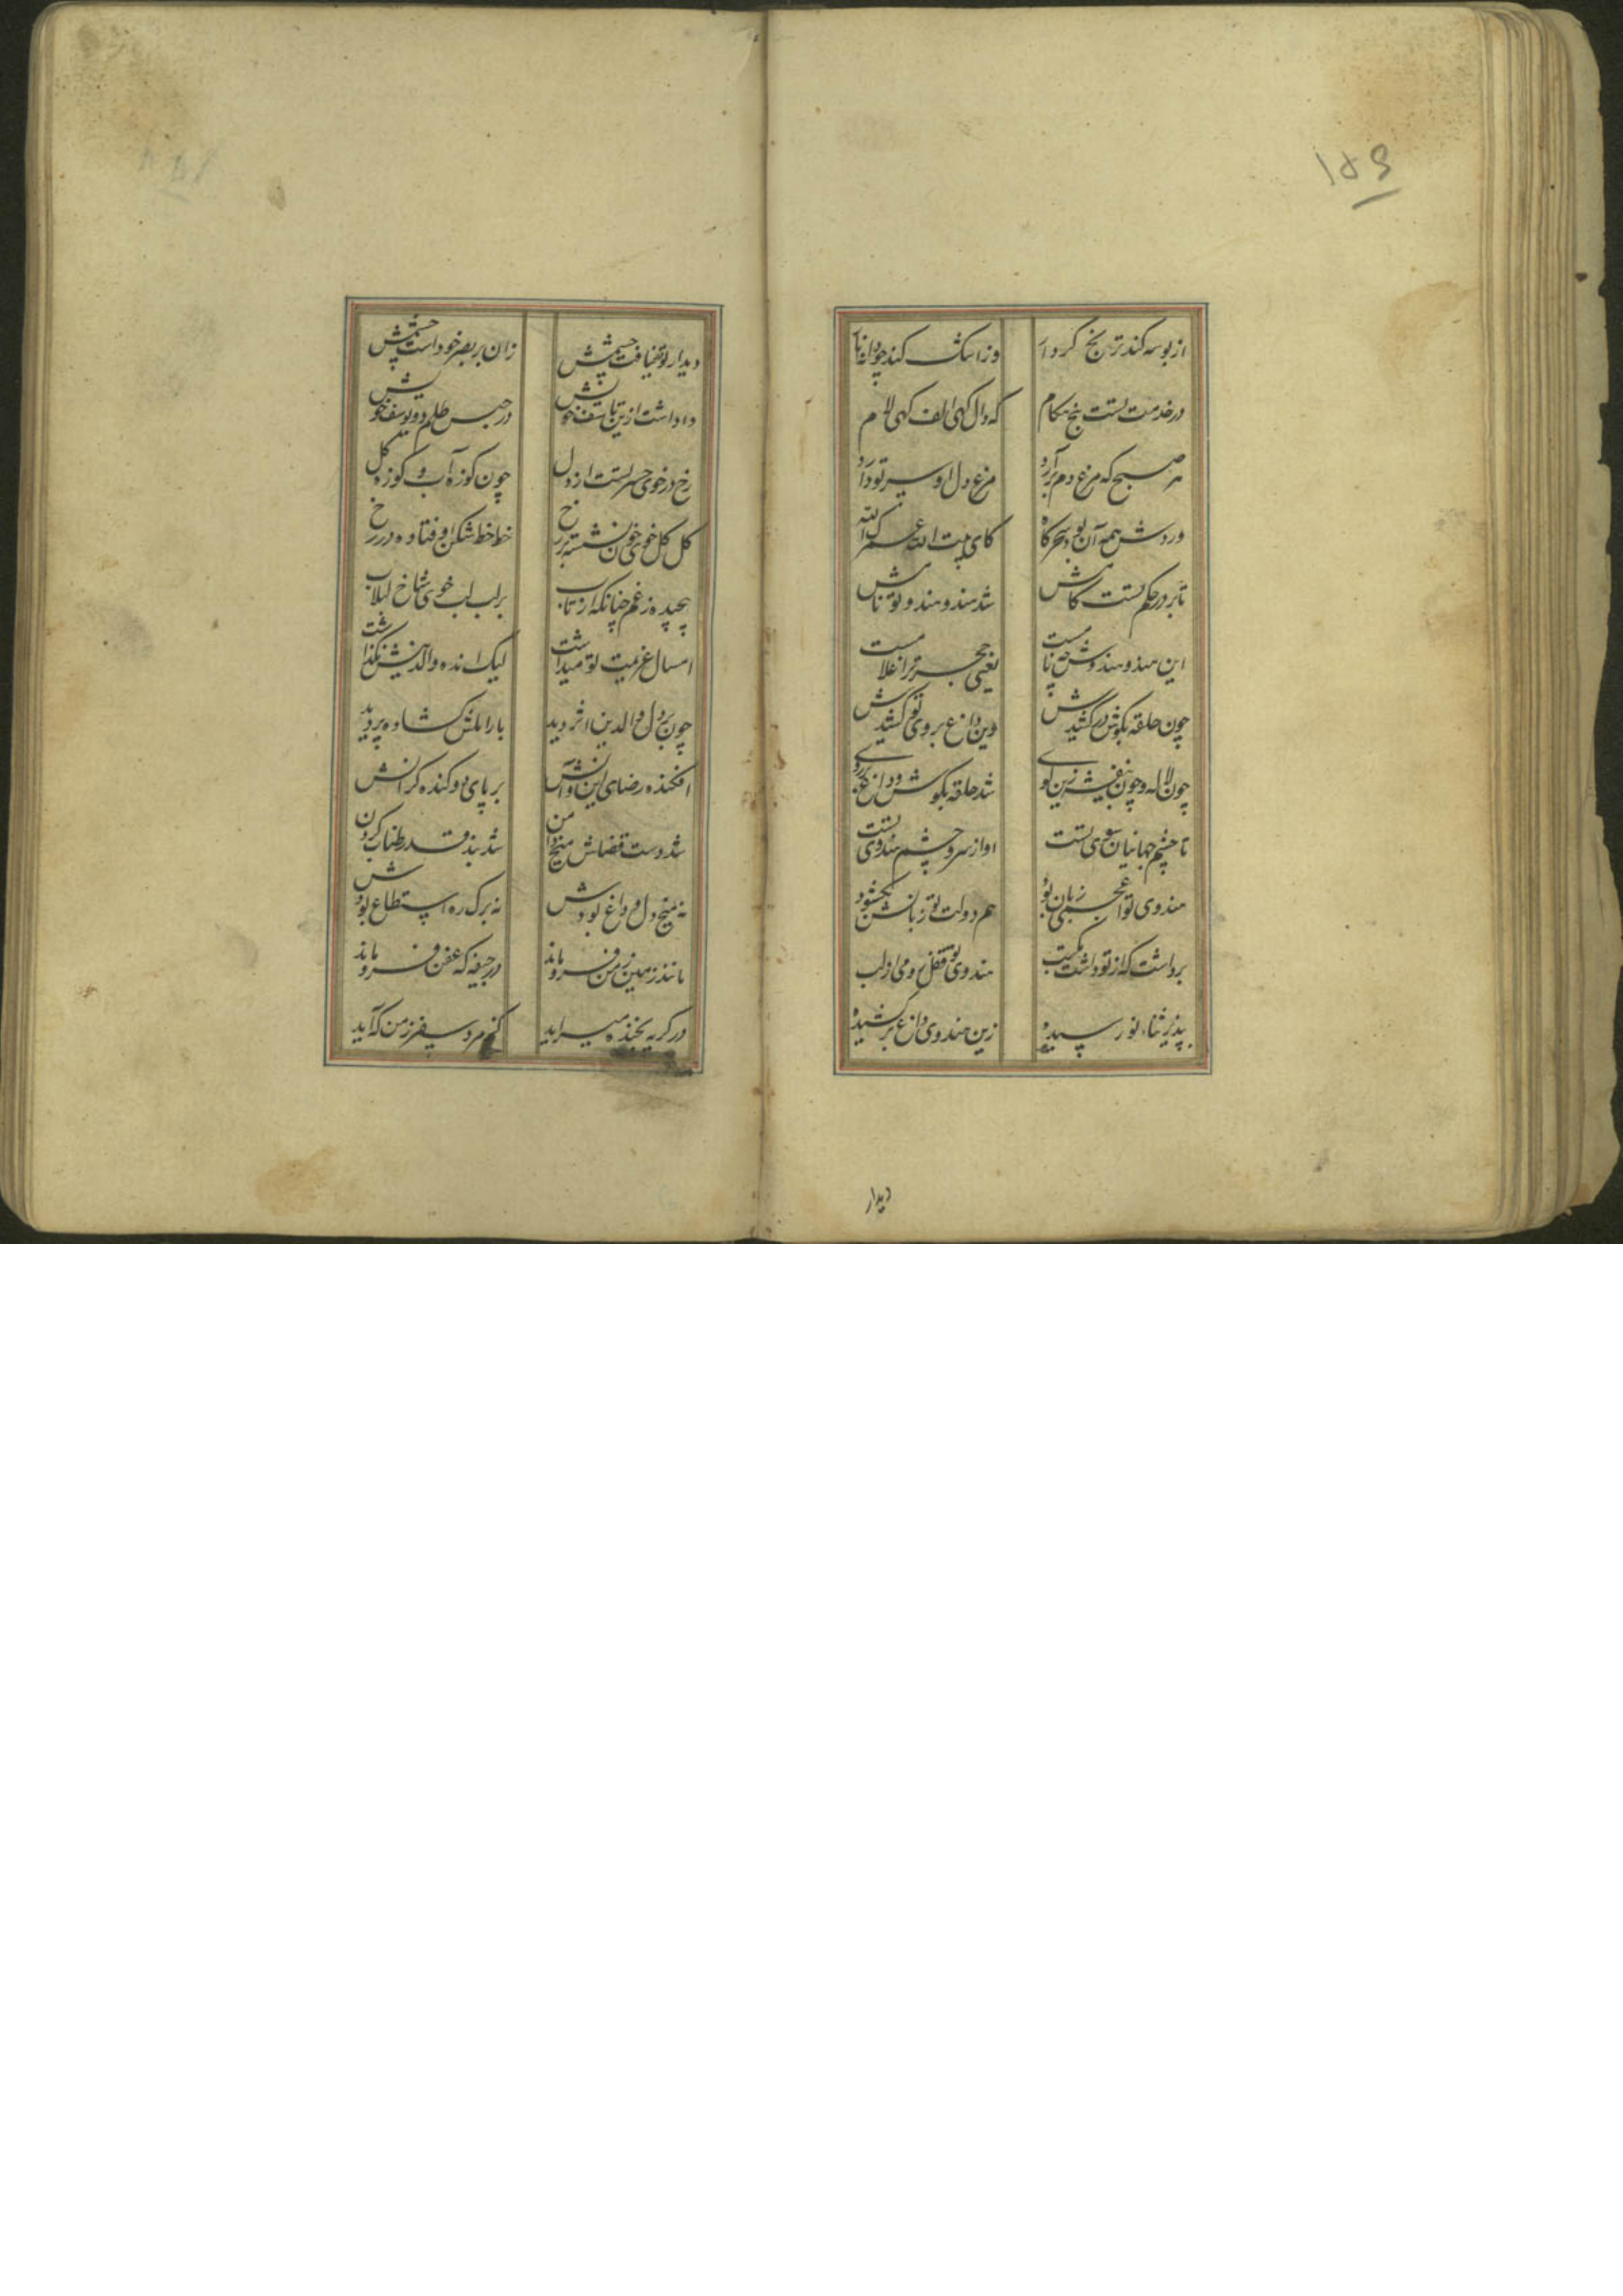 ۱۵۹
از بوسه کند ترنج کردار
وز اشک کند چو دانه نار
در خدمتت بست پنج هنگام
که دال کهی الف کهی لام
هر صبح که مرغ دم برآرد
مرغ دل او سر تو دارد
وردش همه آن بود سحرکاه
کای بیت الله عمرک الله
تا بر در حکم تست کامش
شد هندو هندو تو نامش
این هندو هندوش چه نامست
یعنی حجر ترا غلامست
چون حلقه بکوش در کشیدش
وین داغ بروی تو کشیدش
چون لاله و چون بنفشه زین کوی
شد حلقه بکوش و داغ بر روی
تا چشم جهانیان سوی تست
او از سر و چشم هندوی تست
هندوی تو اعجمی زبان بود
هم دولت تو زبانش بکشود
برداشت که از تو داشت مکتب
هندوی تو قفل رومی از لب
بپذیر ثناء نو رسیده
زین هندوی داغ بر کشیده
دیدار
دیدار تو قضا نیافت چشمش
زان بر بصر خود است خشمش
دل داشت ازین تاسف خویش
در حبس ظلم دو یوسف خویش
رخ در خوی حسرتست از دل
چون کوزه آب و کوزه کل
کل کل خوی خون نشسته بر رخ
خط خط شکن اوفتاده در رخ
پیچیده ز غم چنانکه از تاب
بر لبلب خوی شاخ لبلاب
امسال عزیمت تو میداشت
لیک انده والدینش نکذاشت
چون بر دل والدین اثر دید
بار املش کشاده پر دید
افکنده رضای این و آنش
بر پای دو کنده کرانش
شد دست قضاش میخ دامن
شد بند قدر طناب کردن
نه میخ دل وداع بودش
نه برک ره استطاع بودش
مانند زمین زمن فرو ماند
در جیفه که عفن فرو ماند
در کریه بخنده میسراید
کز مرد سفر زمن که آید